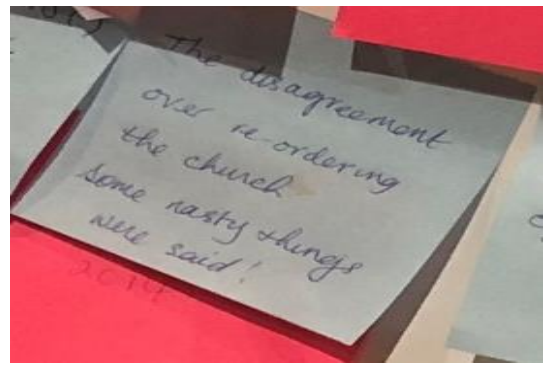 The disagreement
over re-ordering
the church
some nasty things
were said!